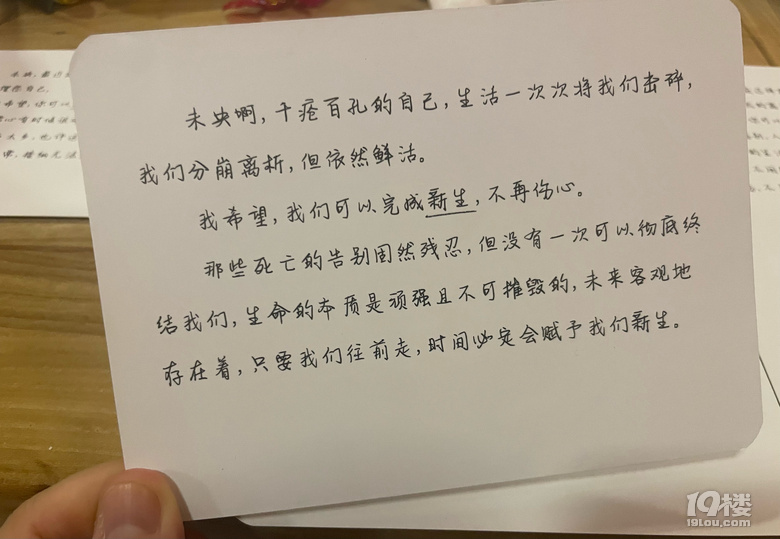 未央啊，千疮百孔的自己，生活一次次将我们击碎，
我们分崩离析，但依然鲜活。
我希望，我们可以完成新生，不再伤心。
那些死亡的告别固然残忍，但没有一次可以彻底终
结我们，生命的本质是顽强且不可摧毁的，未来客观地
存在着，只要我们往前走，时间必定会赋予我们新生。
19楼
19lou.com